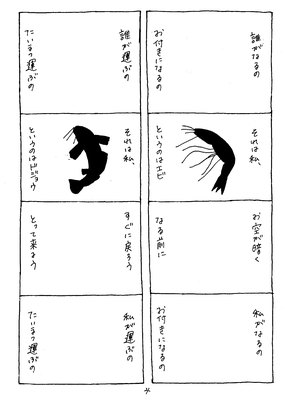 誰がなるの
お付きになるの
それは私、
というのはエビ
お空が暗く
なる前に
私がなるの
お付きになるの
誰が運ぶの
たいまつ運ぶの
それは私、
というのはドジョウ
すぐに戻ろう
とって来よう
私が運ぶの
たいまつ運ぶの